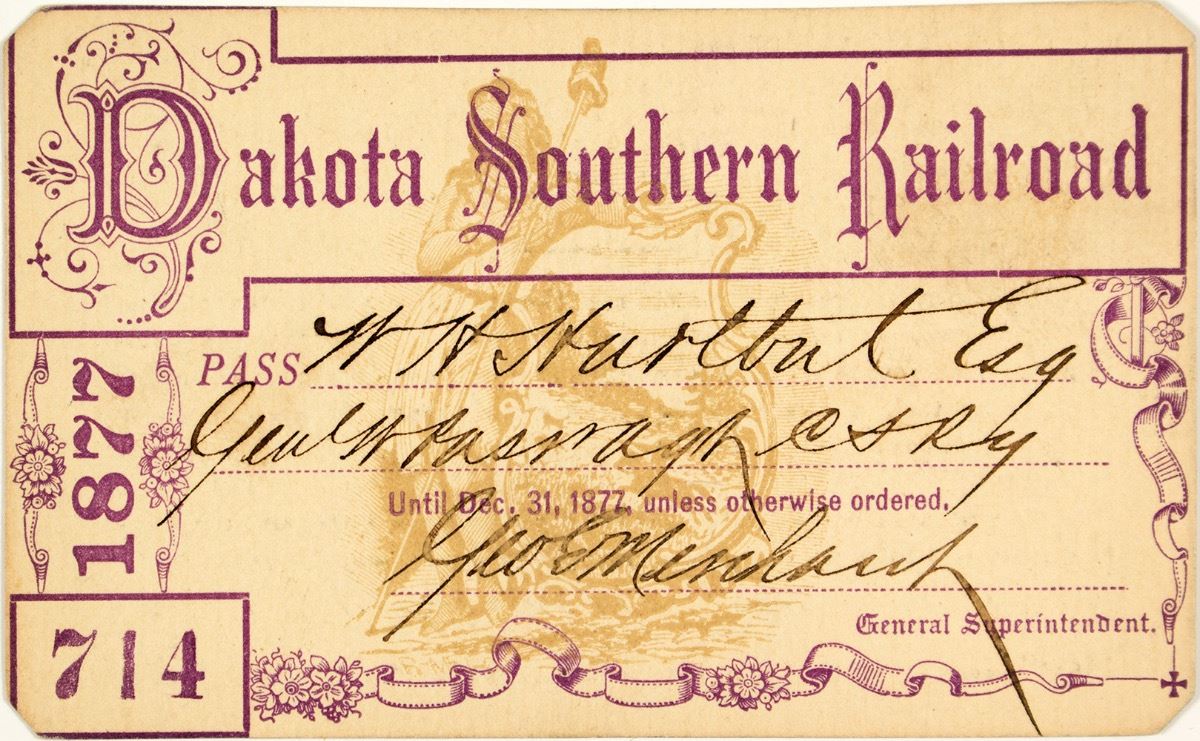 Dakota Southern Railroad
1877
PASS W H Hurlbut Esq
Genl W Pass Agt C S Ry
Until Dec. 31, 1877, unless otherwise ordered.
Geo E Merchant
General Superintendent.
714